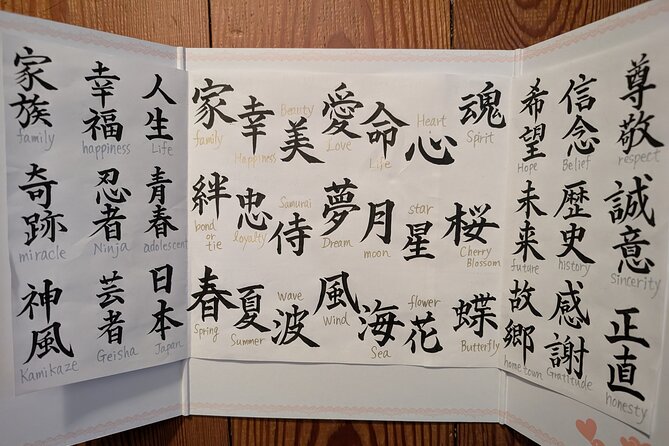 家族
family
幸福
happiness
人生
Life
奇跡
miracle
忍者
Ninja
青春
adolescent
神風
Kamikaze
芸者
Geisha
日本
Japan
家
family
幸
Happiness
Beauty
美
愛
Love
命
Life
Heart
心
魂
Spirit
絆
bond
or
tie
忠
loyalty
Samurai
侍
夢
Dream
月
moon
star
星
桜
Cherry
Blossom
春
Spring
夏
Summer
wave
波
風
Wind
海
Sea
flower
花
蝶
Butterfly
希望
Hope
信念
Belief
尊敬
respect
未来
future
歴史
history
誠意
Sincerity
故郷
hometown
感謝
Gratitude
正直
honesty